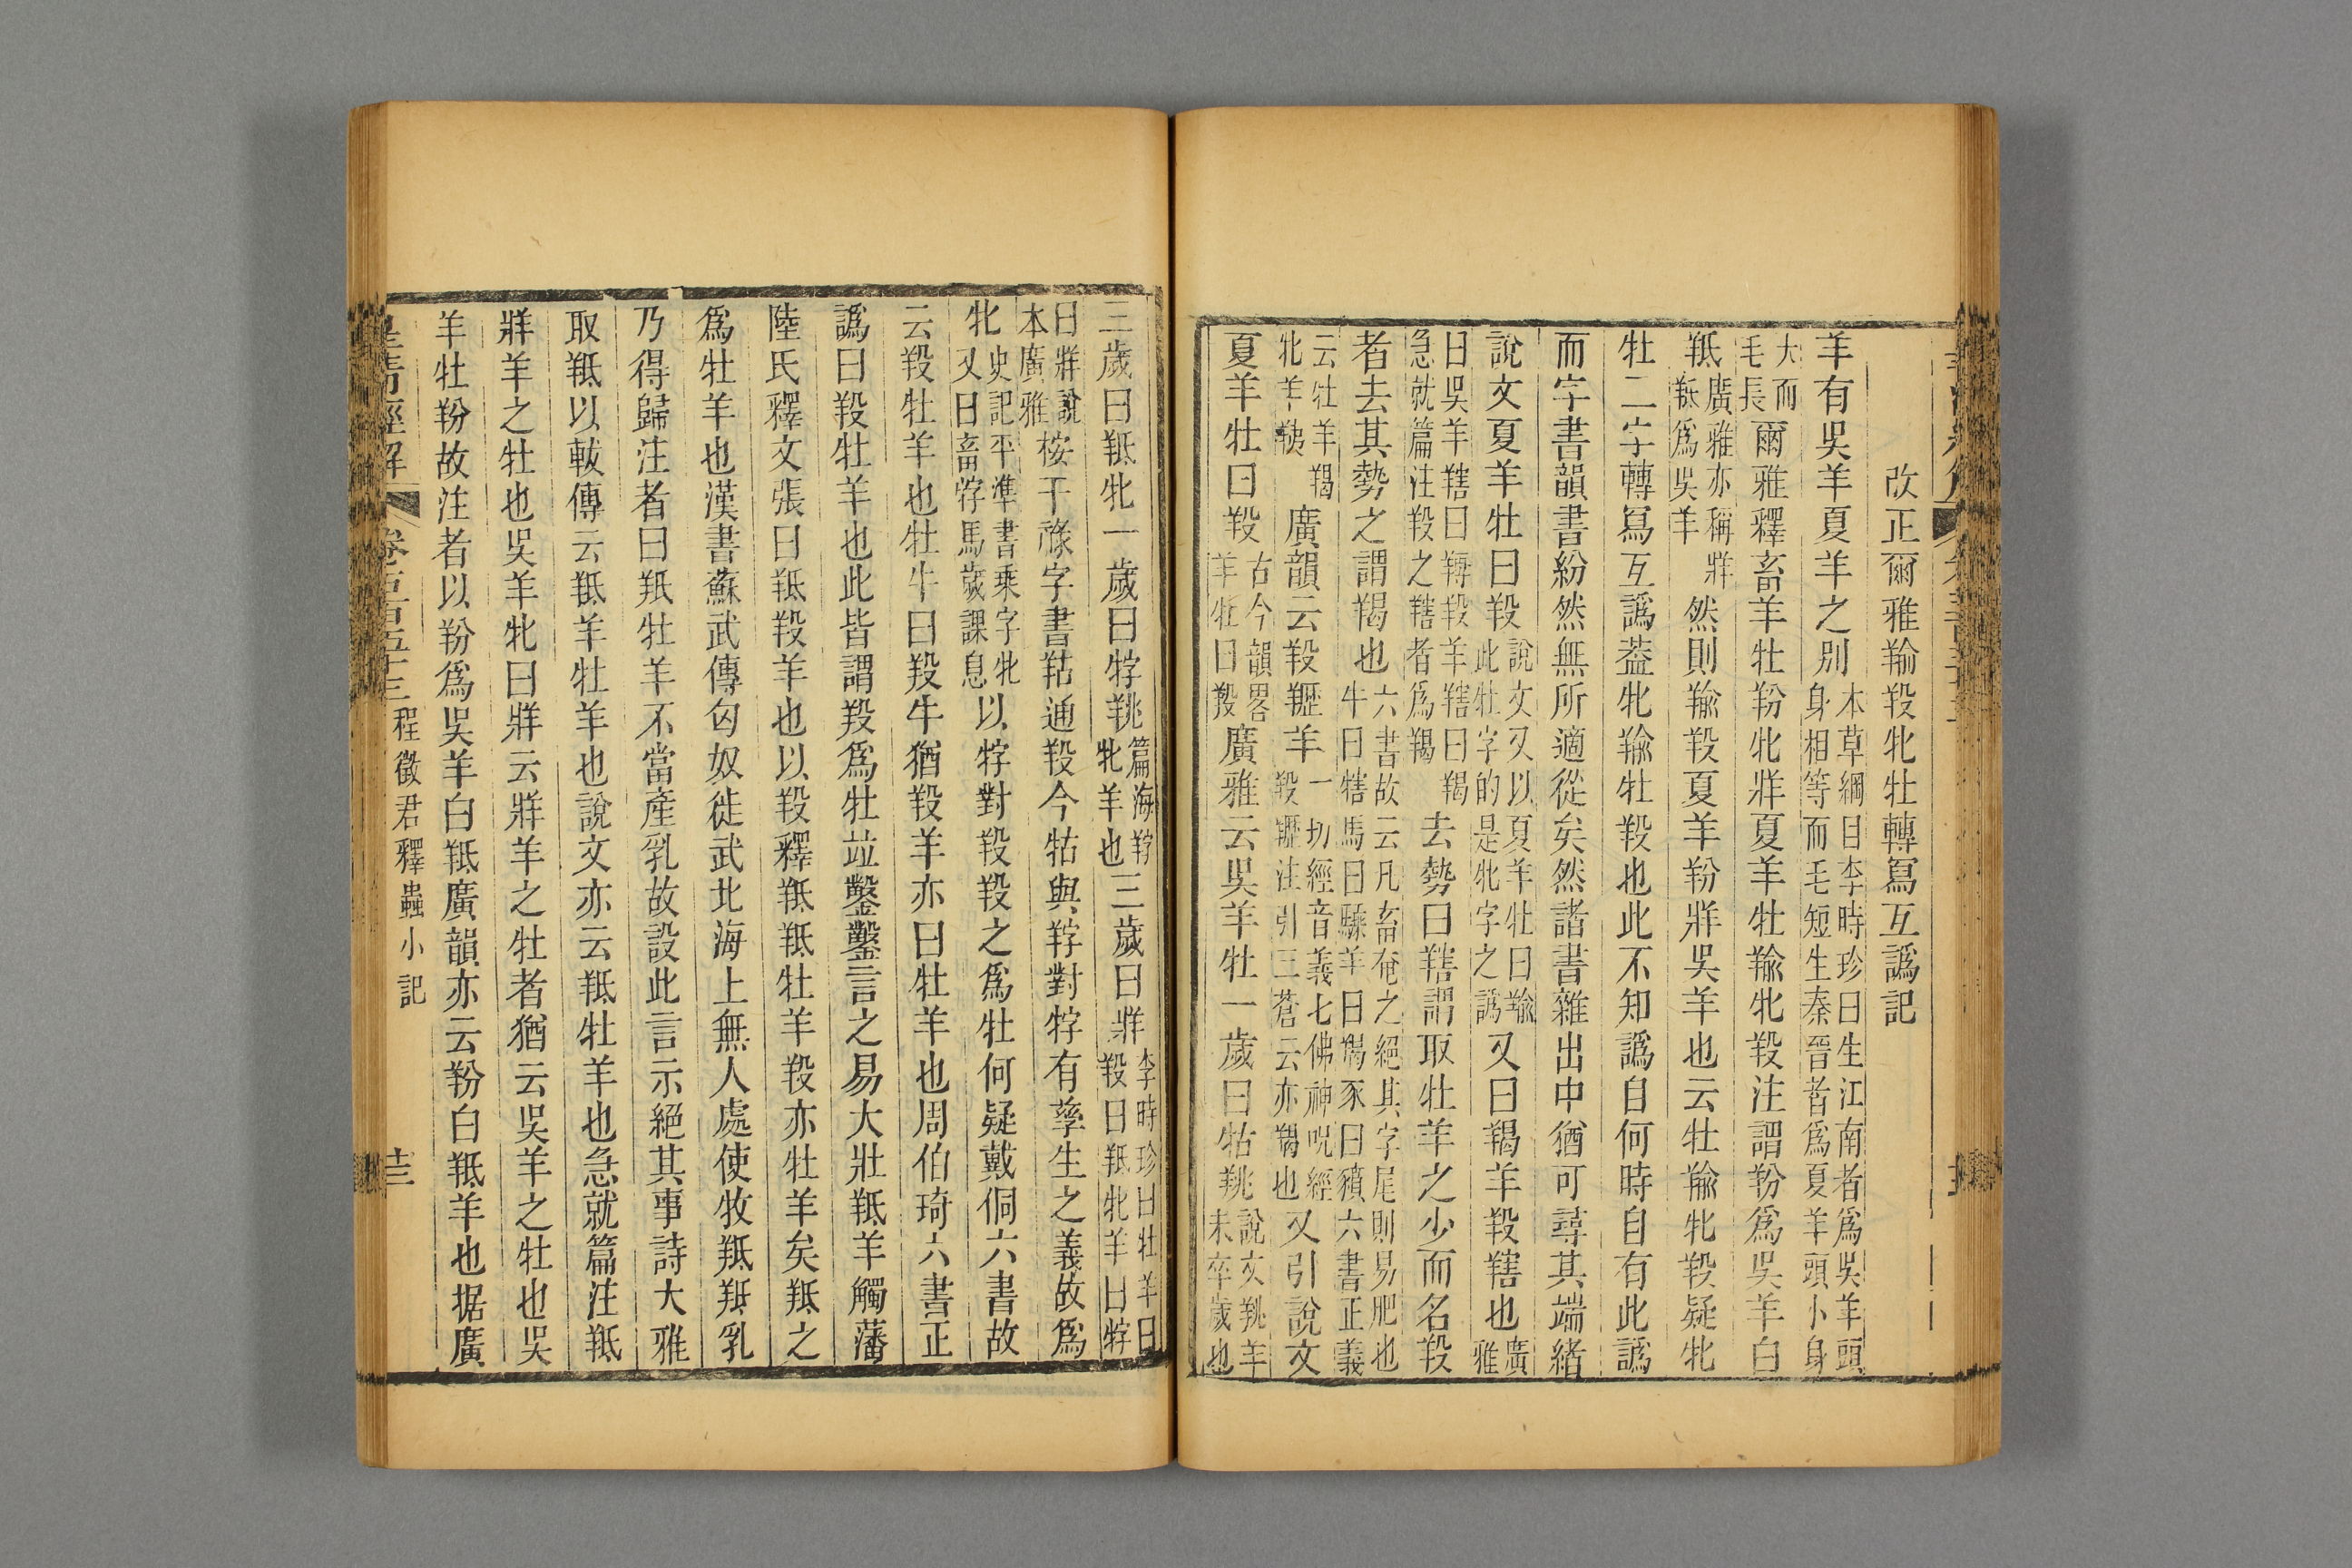 改正爾雅羭羖牝牡轉寫互譌記
羊有吳羊夏羊之別本草綱目李時珍曰生江南者爲吳羊頭身相等而毛短生秦晉者爲夏羊頭小身
大而毛長爾雅釋畜羊牡羒牝牂夏羊牡羭牝羖注謂羒爲吳羊白
羝廣雅亦稱牂羝爲吳羊然則羭羖夏羊羒牂吳羊也云牡羭牝羖疑牝
牡二字轉寫互譌葢牝羭牡羖也此不知譌自何時自有此譌
而字書韻書紛然無所適從矣然諸書雜出中猶可尋其端緒
說文夏羊牡曰羖說文又以夏羊牡曰羭此牡字的是牝字之譌又曰羯羊羖犗也廣雅
曰吳羊犗曰羖羊犗曰羯急就篇注羖之犗者爲羯去勢曰犗謂取牡羊之少而名羖
者去其勢之謂羯也六書故云凡畜奄之絕其字尾則易肥也牛曰犗馬曰騬羊曰羯豕曰豶六書正義
云牡羊羯牝羊羠廣韻云羖䍽羊一切經音義七佛神呪經羖䍽注引三蒼云亦羯也又引說文
夏羊牡曰羖古今韻畧羊牡曰羖廣雅云吳羊牡一歲曰牯䍮說文䍮羊未卒歲也
三歲曰羝牝一歲曰牸䍮篇海牸牝羊也三歲曰牂李時珍曰牡羊曰羖曰羝牝羊曰牸
曰牂說本廣雅按干祿字書通羖今牯與牸對牸有孳生之義故爲
牝史記平準書乘字牝又曰畜牸馬歲課息以牸對羖羖之爲牡何疑戴侗六書故
云羖牡羊也牡牛曰羖牛猶羖羊亦曰牡羊也周伯琦六書正
譌曰羖牡羊也此皆謂羖爲牡竝鑿鑿言之易大壯羝羊觸藩
陸氏釋文張曰羝羖羊也以羖釋羝羝牡羊羖亦牡羊矣羝之
爲牡羊也漢書蘇武傳匈奴徙武北海上無人處使牧羝羝乳
乃得歸注者曰羝牡羊不當產乳故設此言示絕其事詩大雅
取羝以軷傳云羝羊牡羊也說文亦云羝牡羊也急就篇注羝
牂羊之牡也吳羊牝曰牂云牂羊之牡者猶云吳羊之牡也吳
羊牡羒故注者以羒爲吳羊白羝廣韻亦云羒白羝羊也据廣
皇清經解 卷五百五十三 程徵君釋蟲小記 十三